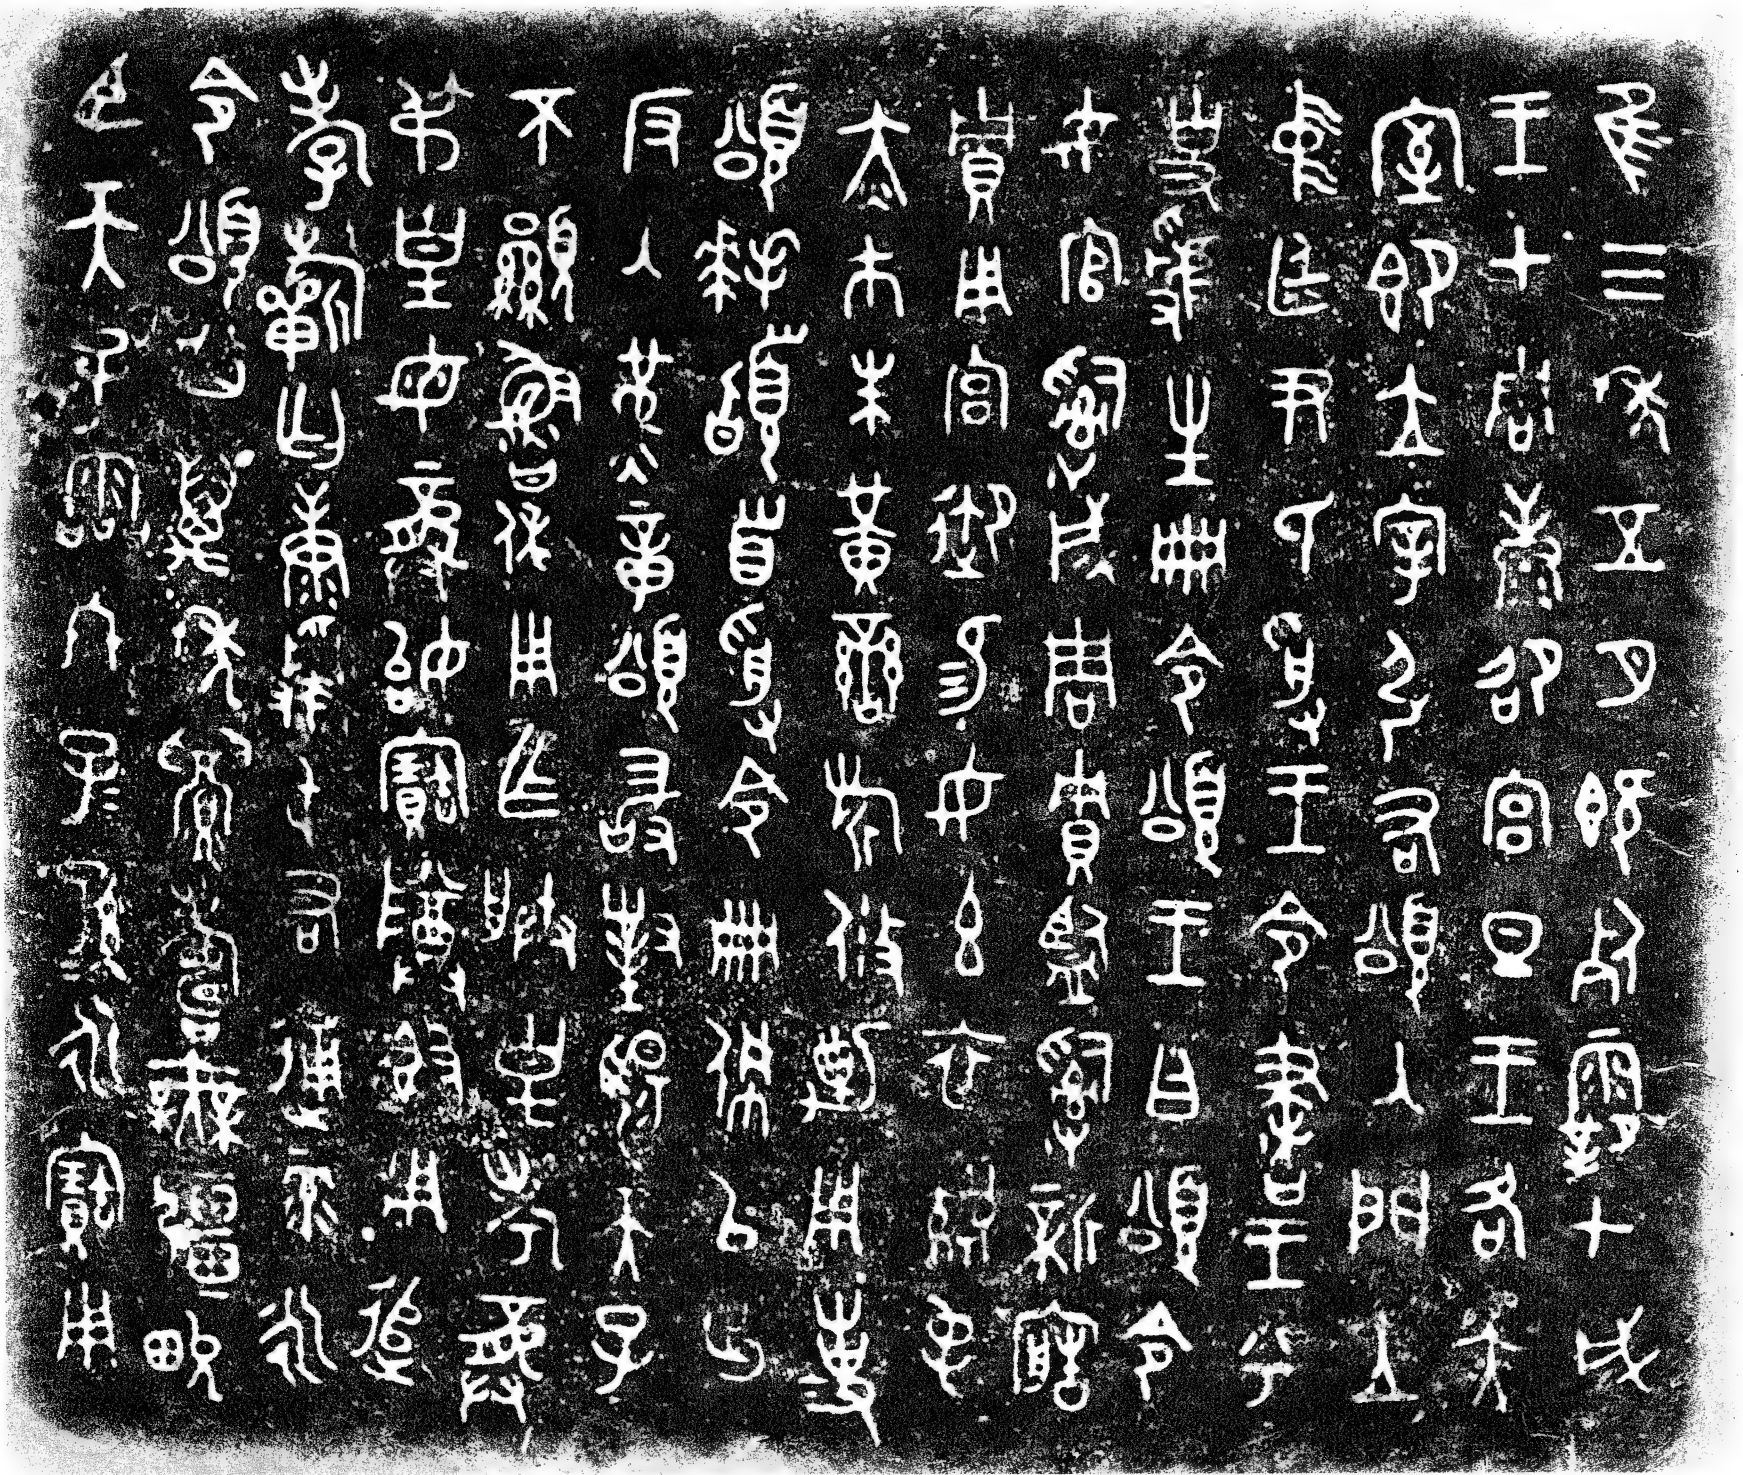 隹三年五月既死霸甲戌
王才周康卲宮旦王各大
室即立宰引右頌入門立
中廷尹氏受王令書王乎
史虢生冊令頌王曰頌令
女官𤔲成周貯監𤔲新造
貯用宮御易女玄衣黹屯
赤巿朱黃䜌旂攸勒用事
頌拜𩒨首受令冊佩以出
反入堇章頌敢對揚天子
不顯魯休用乍朕皇考龏
弔皇母龏始寶尊鼎用追
孝𣄨匄康𢖽屯右通彔永
令頌其萬年眉壽無疆畯
臣天子霝冬子=孫=永寶用